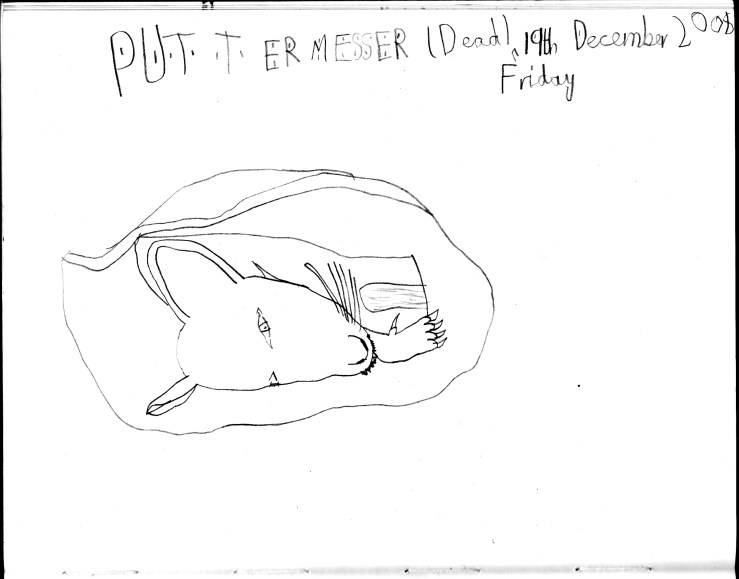 PUTTERMESSER (Dead) 19th December 2008
Friday